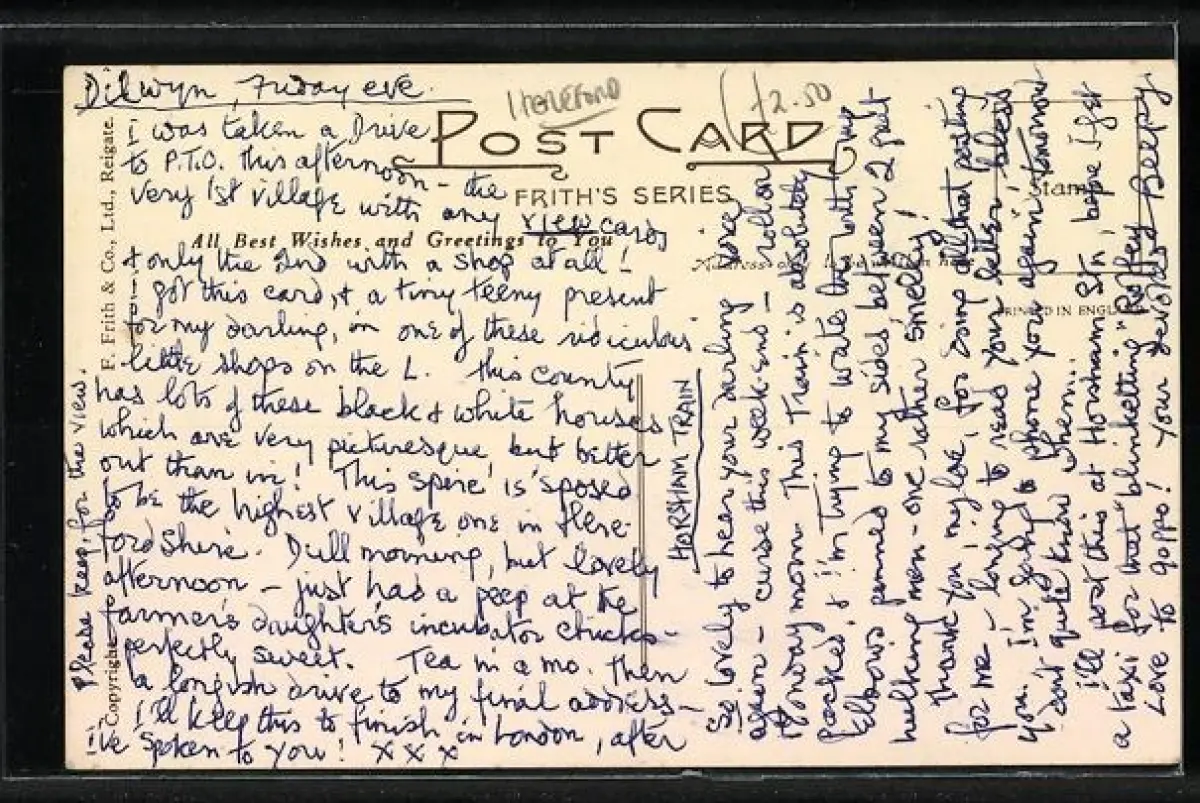 Dilwyn, Friday eve.
HEREFORD
£2.50
POST CARD
FRITH'S SERIES
All Best Wishes and Greetings to You
Stamp
PRINTED IN ENGLAND
Copyright F. Frith & Co., Ltd., Reigate.
Please keep, for the view.
I was taken a Drive
to P.T.O. this afternoon - the
very 1st village with any view cards
& only the 2nd with a shop at all!
I got this card, & a tiny teeny present
for my darling, in one of these ridiculous
little shops on the L. This county
has lots of these black & white houses
which are very picturesque, but better
out than in! This spire is 'sposed
to be the highest village one in Here-
fordshire. Dull morning, but lovely
afternoon - just had a peep at the
farmer's daughter's incubator chicks -
perfectly sweet. Tea in a mo. Then
a longish drive to my final address -
I'll keep this to finish in London, after
I've spoken to you! x x x
HORSHAM TRAIN
So lovely to hear your darling voice
again - curse this week-end - roll on
Monday morn. This Train is absolutely
packed, & I'm trying to write this with my
Elbows pinned to my sides between 2 great
hulking men - one rather smelly!
Thank you, my love, for doing all that
for me - longing to read your letter bless
you. I'm going to phone you again tomorrow
don't quite know when..
I'll post this at Horsham Stn, before I get
a taxi for that "blinketting" Roffey
Love to Goppo! Your devoted Beepy